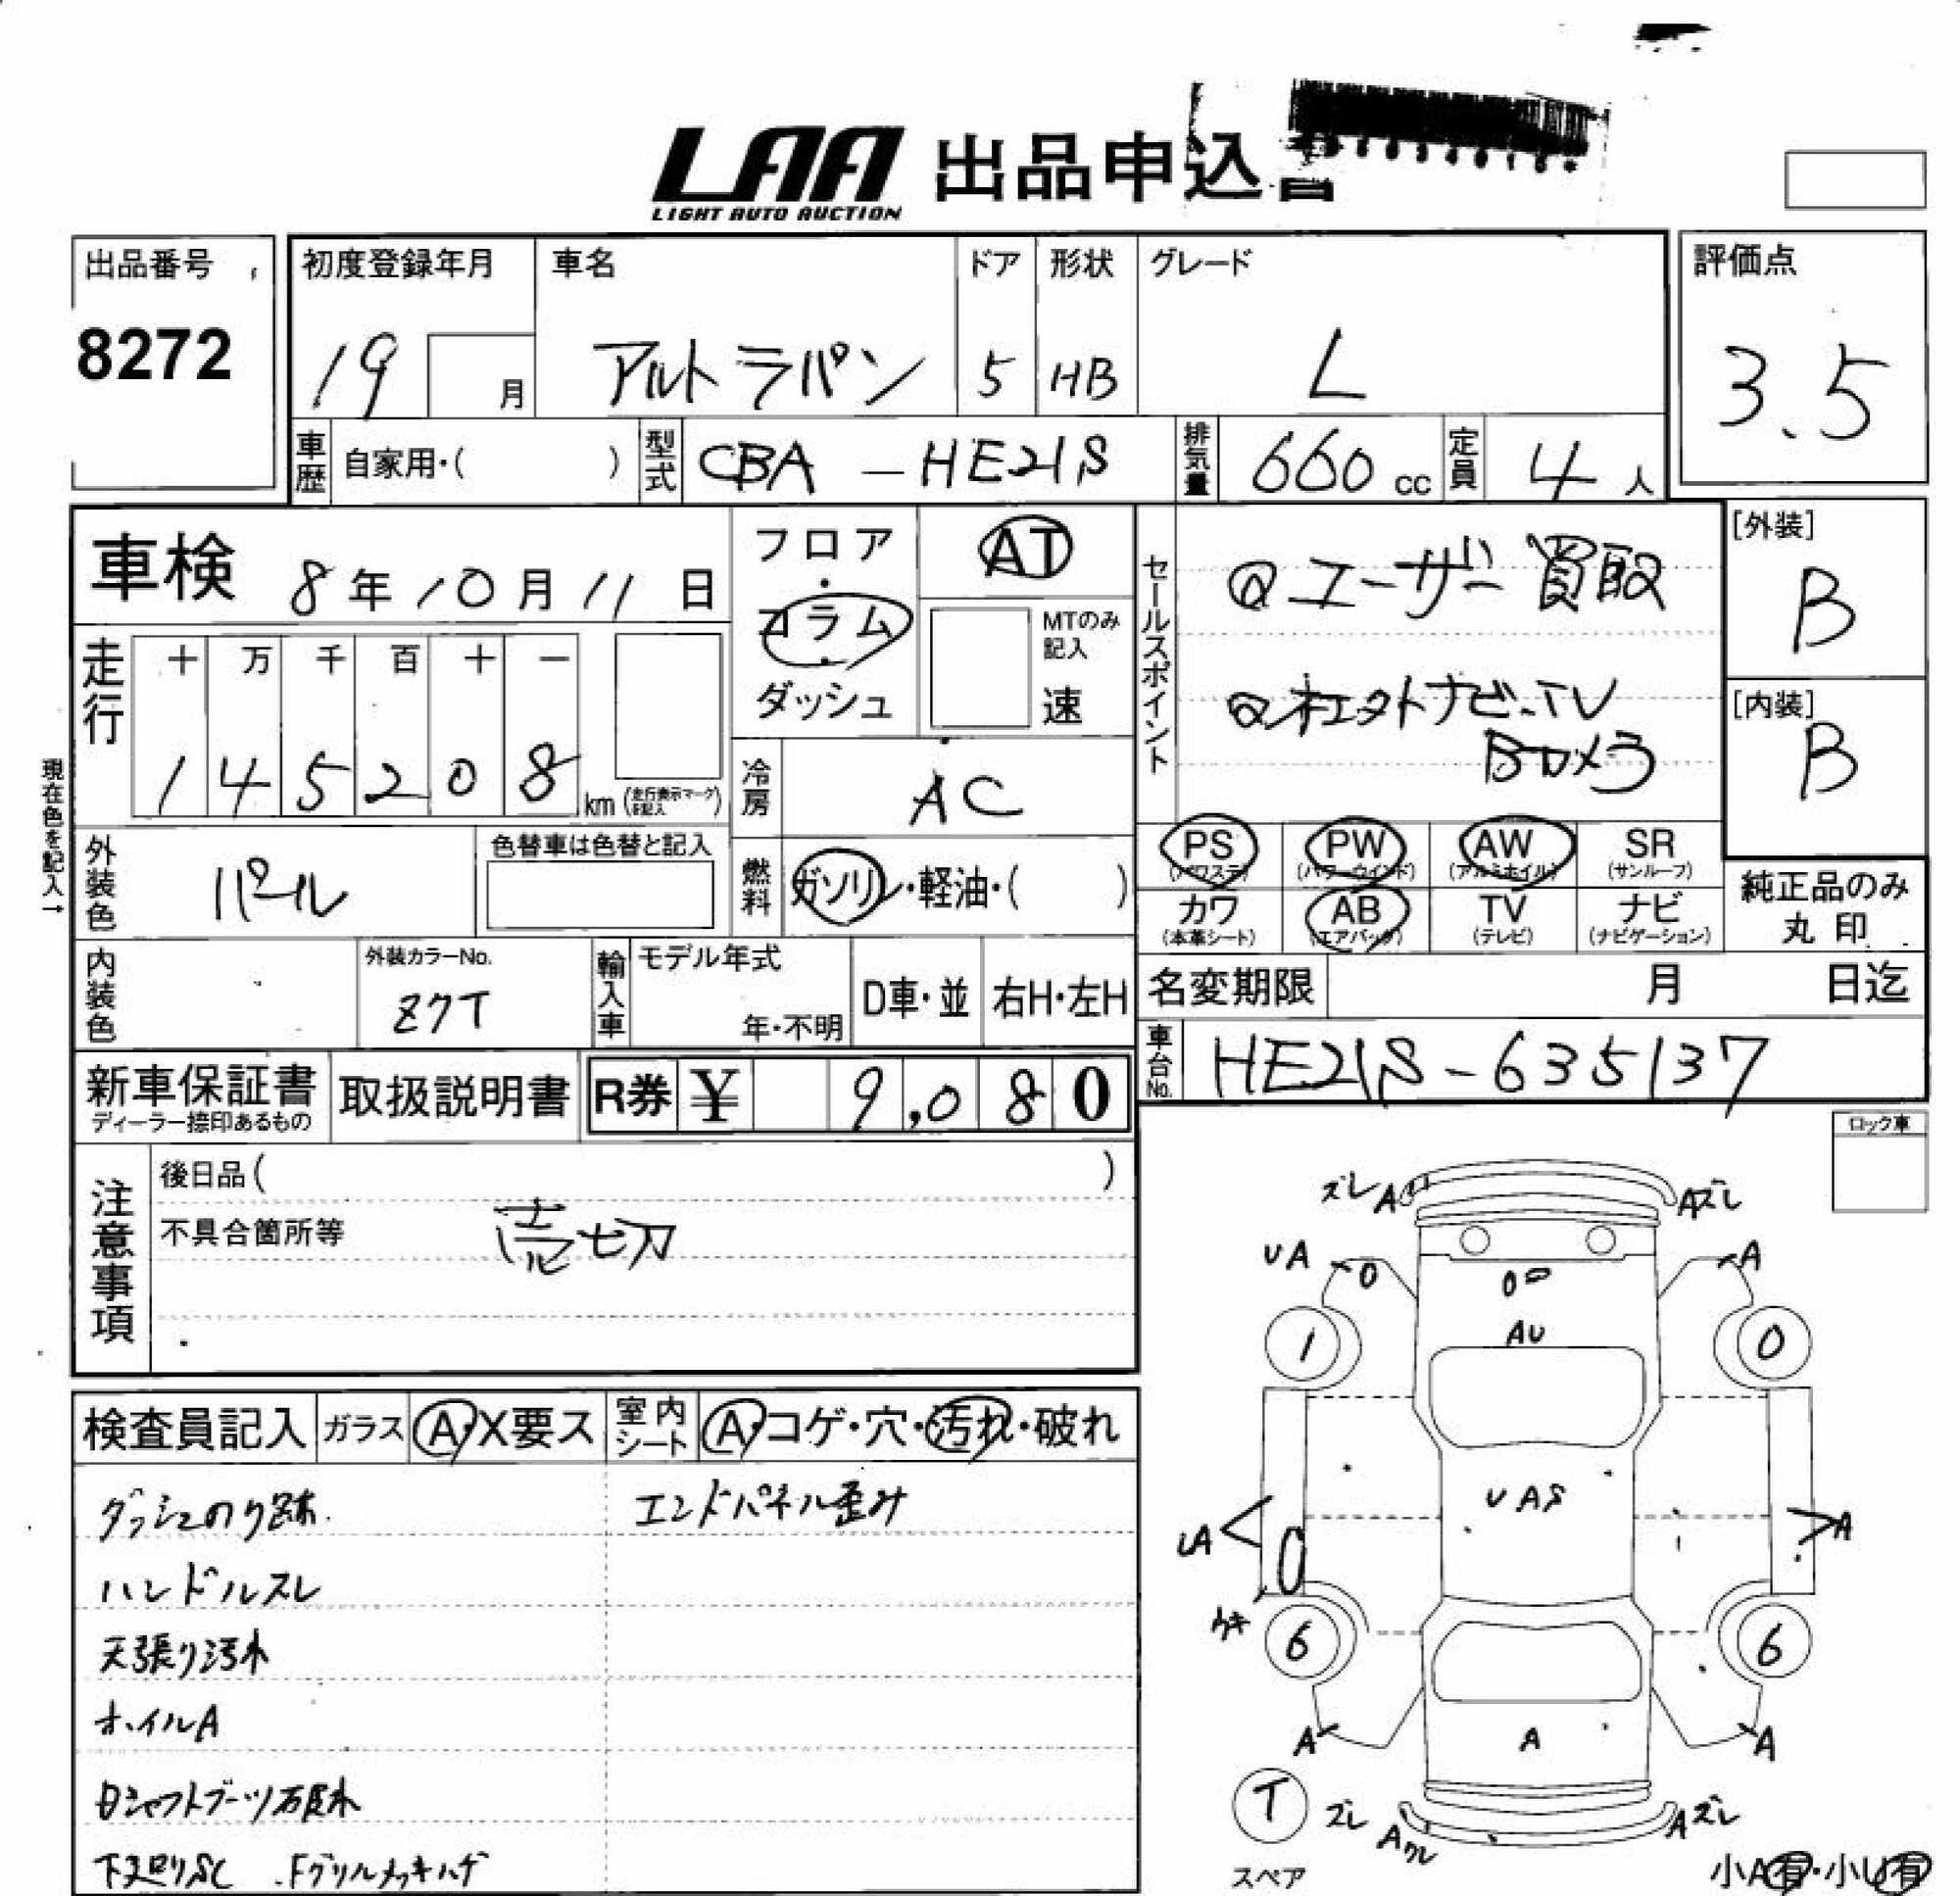 LAA 出品申込書
LIGHT AUTO AUCTION
出品番号
8272
初度登録年月
19 月
車名
アルトラパン
ドア
5
形状
HB
グレード
L
評価点
3.5
車歴 自家用・( )
型式 CBA-HE21S
排気量 660 cc
定員 4 人
車検 8年10月11日
フロア・コラム・ダッシュ
AT
MTのみ記入
速
走行
十 万 千 百 十 一
1 4 5 2 0 8 km (走行表示マークを記入)
現在色を記入→
冷房 AC
外装色 パール
色替車は色替と記入
燃料 ガソリン・軽油・( )
セールスポイント
ユーザー買取
社外ナビ.TV
Bカメラ
[外装]
B
[内装]
B
PS (パワステ)
PW (パワーウインド)
AW (アルミホイル)
SR (サンルーフ)
カワ (本革シート)
AB (エアバック)
TV (テレビ)
ナビ (ナビゲーション)
純正品のみ丸印
内装色
外装カラーNo.
Z7T
輸入車
モデル年式
年・不明
D車・並
右H・左H
名変期限 月 日迄
車台No. HE21S-635137
新車保証書
ディーラー捺印あるもの
取扱説明書
R券 ¥ 9,080
ロック車
注意事項
後日品( )
不具合箇所等 売切
検査員記入
ガラス A・X要ス
室内シート A・コゲ・穴・汚れ・破れ
ダッシュのり跡
エンドパネル歪み
ハンドルスレ
天張り汚れ
ホイルA
Dシャフトブーツ破れ
下廻りSC Fグリルメッキハゲ
ズレ A
Aズレ
UA
A
AU
1
0
UAS
UA
A
ウキ
6
6
A
A
A
T
スペア
ズレ
Aワレ
Aズレ
小A有・小U有